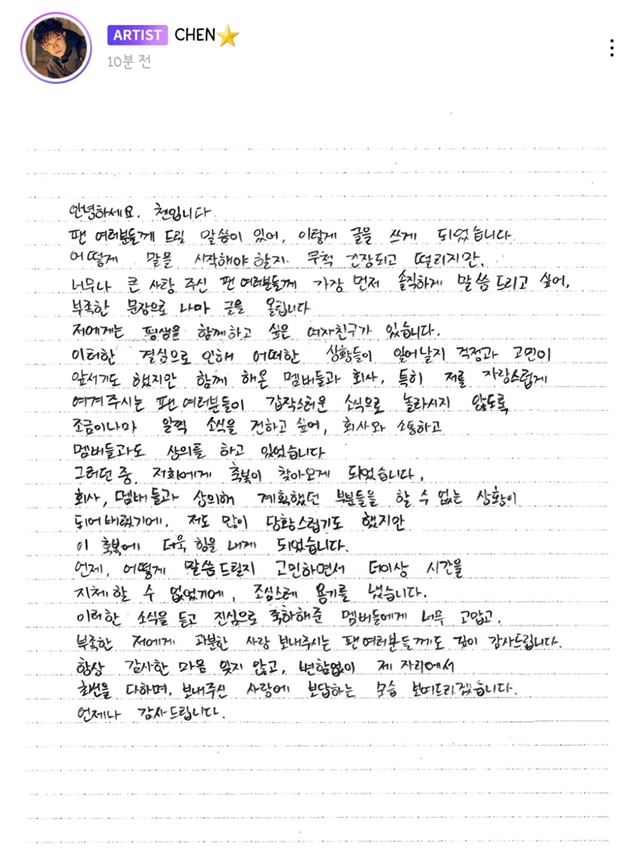 ARTIST CHEN
10분 전
안녕하세요. 첸입니다
팬 여러분들께 드릴 말씀이 있어, 이렇게 글을 쓰게 되었습니다.
어떻게 말을 시작해야 할지. 무척 긴장되고 떨리지만,
너무나 큰 사랑 주신 팬 여러분들께 가장 먼저 솔직하게 말씀드리고 싶어,
부족한 문장으로 나마 글을 올립니다
저에게는 평생을 함께하고 싶은 여자친구가 있습니다.
이러한 결심으로 인해 어떠한 상황들이 일어날지 걱정과 고민이
앞서기도 했지만 함께 해온 멤버들과 회사, 특히 저를 자랑스럽게
여겨주시는 팬 여러분들이 갑작스러운 소식으로 놀라시지 않도록
조금이나마 일찍 소식을 전하고 싶어, 회사와 소통하고
멤버들과도 상의를 하고 있었습니다
그러던 중, 저희에게 축복이 찾아오게 되었습니다.
회사, 멤버들과 상의해 계획했던 부분들을 할 수 없는 상황이
되어버렸기에, 저도 많이 당황스럽기도 했지만
이 축복에 더욱 힘을 내게 되었습니다.
언제, 어떻게 말씀드릴지 고민하면서 더이상 시간을
지체할 수 없었기에, 조심스레 용기를 냈습니다.
이러한 소식을 듣고 진심으로 축하해준 멤버들에게 너무 고맙고,
부족한 저에게 과분한 사랑 보내주시는 팬 여러분들께도 깊이 감사드립니다.
항상 감사한 마음 잊지 않고, 변함없이 제 자리에서
최선을 다하며, 보내주신 사랑에 보답하는 모습 보여드리겠습니다.
언제나 감사드립니다.